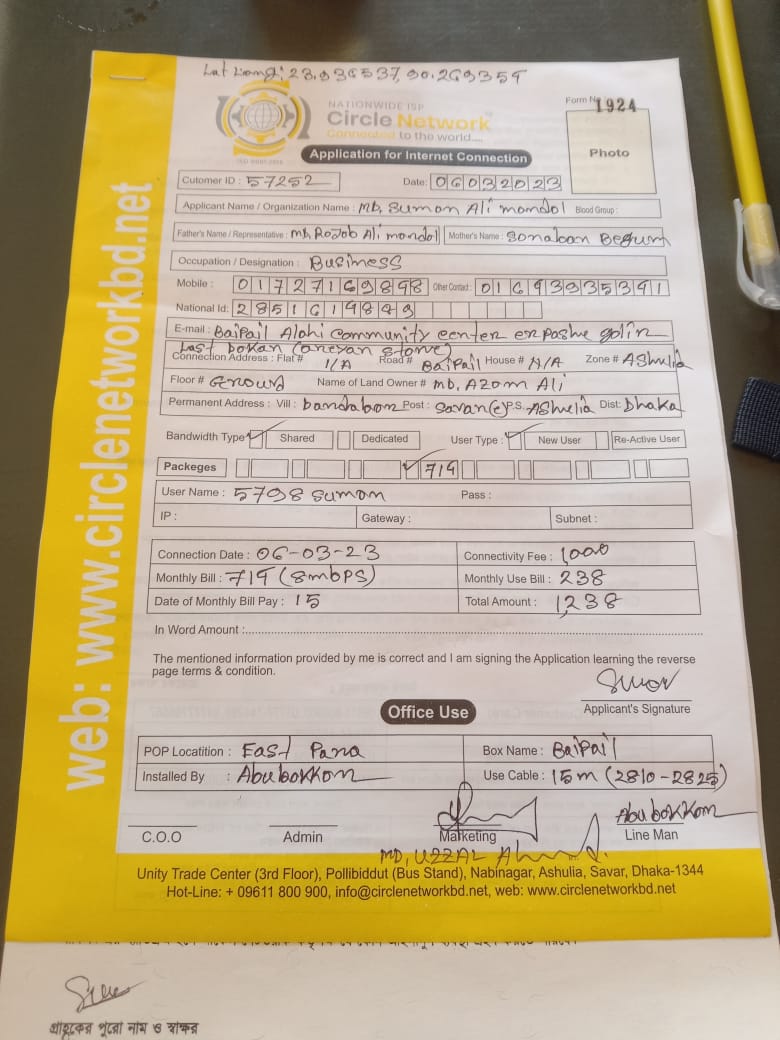 Lat Liang: 23.936537, 90.269354
NATIONWIDE ISP
Circle Network
Connected to the world....
Form No 1924
Photo
Application for Internet Connection
Cutomer ID : 57252 Date: 06032023
Applicant Name / Organization Name : Mb. Sumon Ali mondol Blood Group :
Father's Name / Representative : Mb, Rojob Ali mondol Mother's Name : Sonaban Begum
Occupation / Designation : Business
Mobile : 01727169898 Other Contact : 01693935391
National Id: 2851619849
E-mail : Baipail Alahi community center er pashe golir
Last dokan
Connection Address : Flat # 1/A Road # Baipail House # N/A Zone # Ashulia
Floor # Ground Name of Land Owner # mb, Azom Ali
Permanent Address : Vill : bandabom Post : Savar P.S. Ashulia Dist: Dhaka
Bandwidth Type ✓ Shared Dedicated User Type : ✓ New User Re-Active User
Packeges ✓ 714
User Name : 5798 sumon Pass :
IP : Gateway : Subnet :
Connection Date : 06-03-23 Connectivity Fee : 1,000
Monthly Bill : 714 (8mbps) Monthly Use Bill : 238
Date of Monthly Bill Pay : 15 Total Amount : 1,238
In Word Amount :
The mentioned information provided by me is correct and I am signing the Application learning the reverse
page terms & condition.
Sumon
Applicant's Signature
Office Use
POP Locatition : East Para Box Name : Baipail
Installed By : Abubokkom Use Cable : 15m (2810-2825)
Abubokkom
C.O.O Admin Marketing Line Man
MD, UZZAL Ahmed.
Unity Trade Center (3rd Floor), Pollibiddut (Bus Stand), Nabinagar, Ashulia, Savar, Dhaka-1344
Hot-Line: + 09611 800 900, info@circlenetworkbd.net, web: www.circlenetworkbd.net
web: www.circlenetworkbd.net
গ্রাহকের পুরো নাম ও স্বাক্ষর